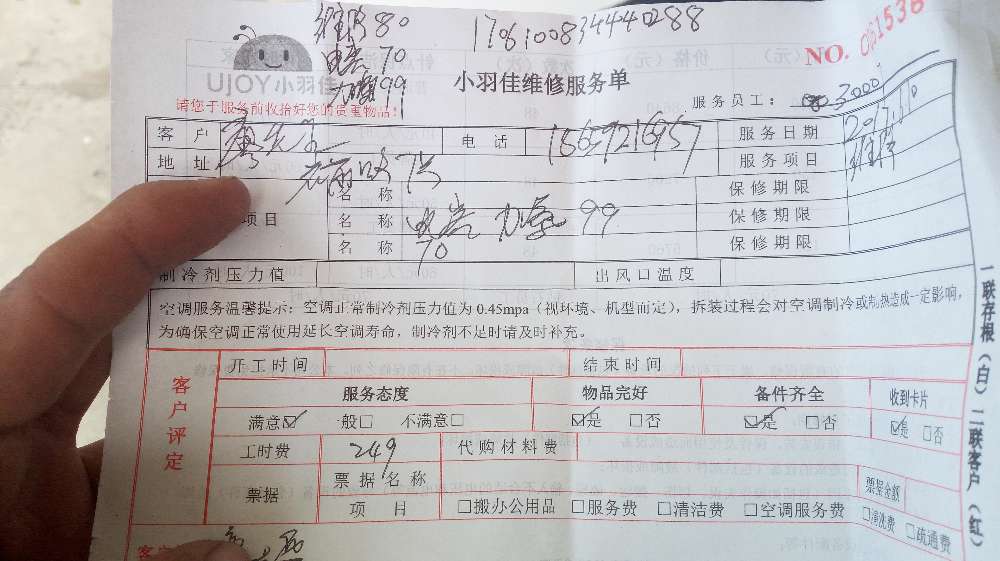 维修80
17081008344440288
电容70
力矩99
NO. 061536
UJOY小羽佳
小羽佳维修服务单
请您于服务前收拾好您的贵重物品!
服务员工: 3000
客 户
电 话
服务日期
地 址
服务项目 维修
名 称
保修期限
项目
名 称 电容 99
保修期限
名 称 70
保修期限
制冷剂压力值
出风口温度
空调服务温馨提示:空调正常制冷剂压力值为 0.45mpa(视环境、机型而定),拆装过程会对空调制冷或制热造成一定影响,
为确保空调正常使用延长空调寿命,制冷剂不足时请及时补充。
一联存根(白)二联客户(红)
客户评定
开工时间
结束时间
服务态度
物品完好
备件齐全
收到卡片
满意☑ 般□ 不满意□
☑是 □否
☑是 □否
☑是 □否
工时费 249
代购材料费
票据
票据名称
票据金额
项 目
□搬办公用品 □服务费 □清洁费 □空调服务费 □清洗费 □疏通费